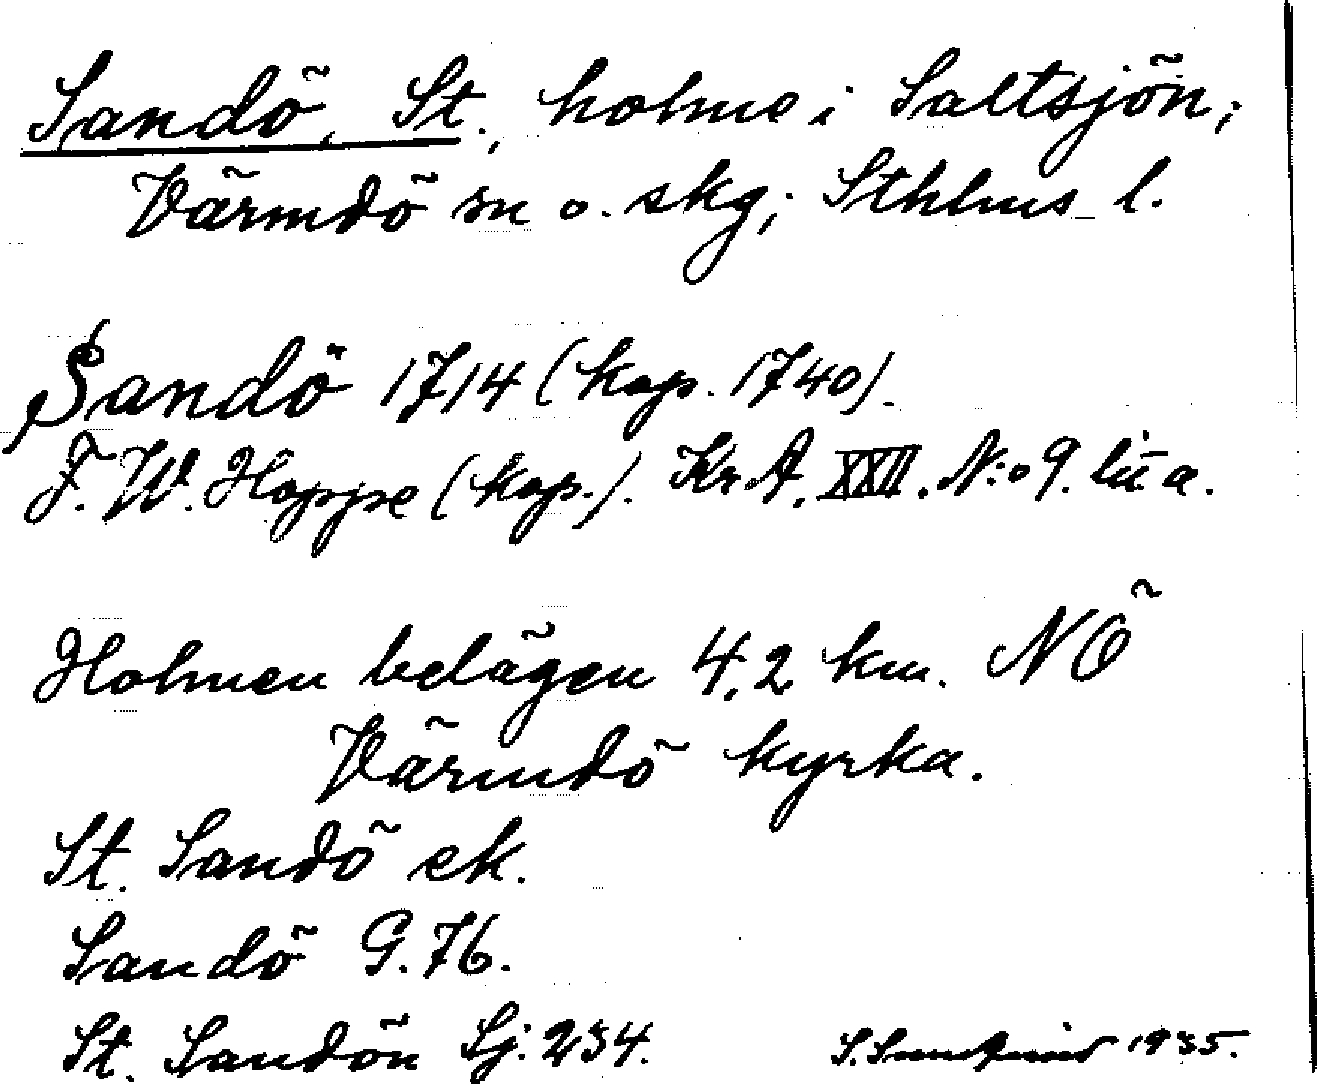 Sandö, St., holme i Saltsjön;
Värmdö sn o. skg; Sthlms l.
Sandö 1714 (kop. 1740).
F. W. Hoppe (kop.). Kr. A. XXII. N:o 9. litt a.
Holmen belägen 4,2 km. NÖ
Värmdö kyrka.
St. Sandö ek.
Sandö G. 76.
St. Sandön Sj. 234.
S. 1935.